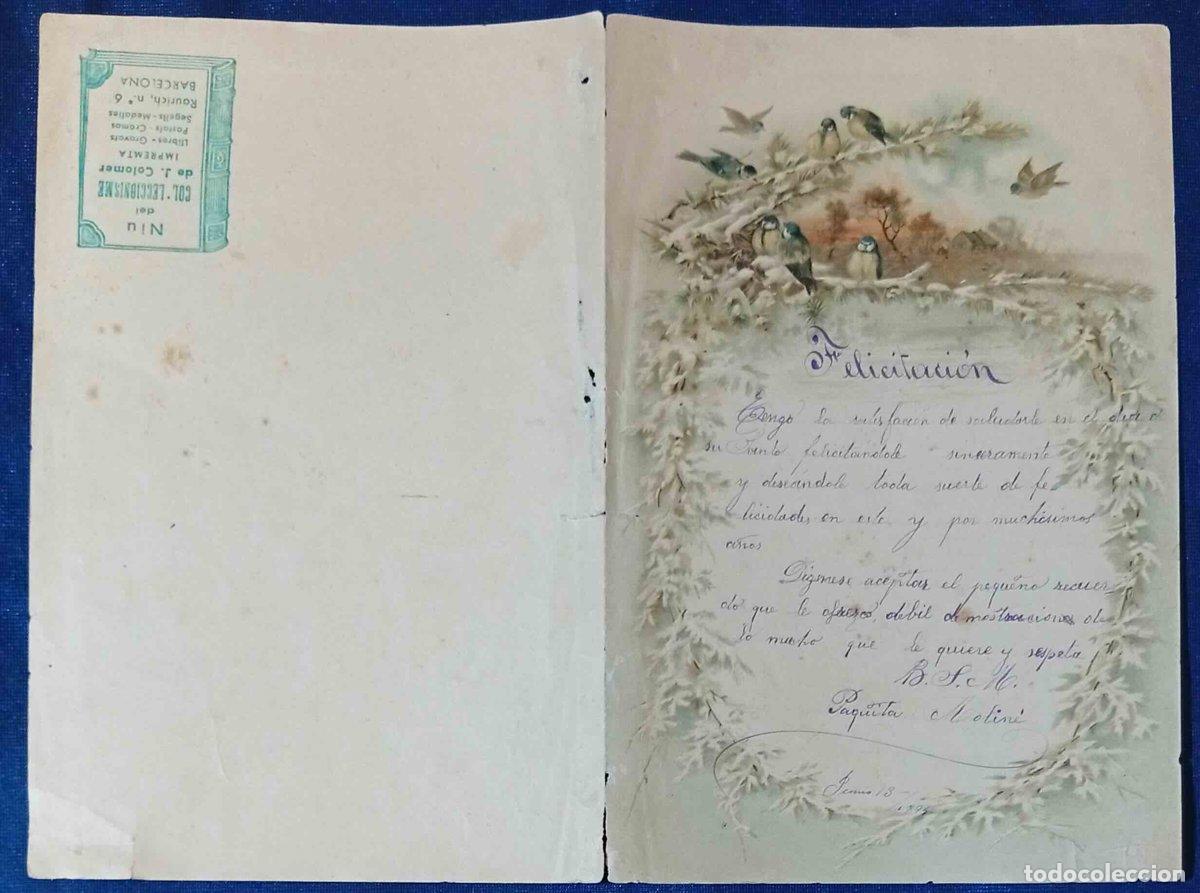 Niu
del
COL·LECCIONISME
de J. Colomer
IMPREMTA
Llibres - Gravats
Postals - Cromos
Segells - Medalles
Raurich, n.° 6
BARCELONA
Felicitación
Tengo la satisfacción de saludarle en el dia d
su Santo felicitandole sinceramente
y deseándole toda suerte de fe
licidades en este y por muchisimos
años
Dignese aceptar el pequeño recuer-
do que le ofrezco, debil demostraciones de
lo mucho que le quiere y respeta
B. S. M.
Paquita Moliné
13
todocoleccion